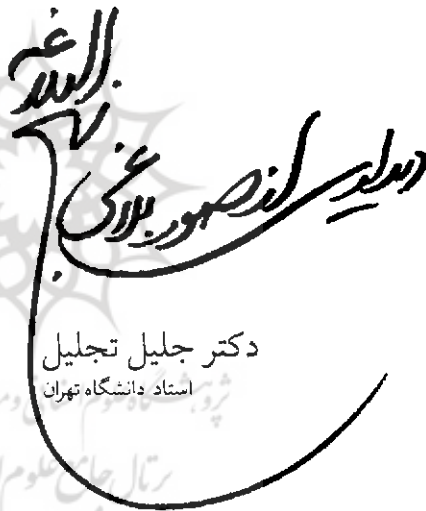 دیداری از صور بلاغی
نهج البلاغه
دکتر جلیل تجلیل
استاد دانشگاه تهران
پژوهشگاه علوم انسانی و م
پرتال جامع علوم ا